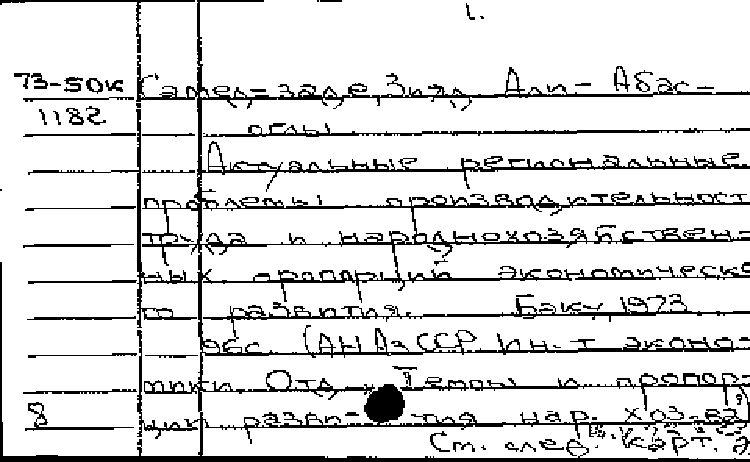 1.
73-50к Самед-заде, Зияд Али-Абас-
1182 оглы
Актуальные региональные
проблемы производительност
труда и народнохозяйствен-
ных пропорций экономическо
го развития. Баку, 1973.
96с. (АН АзССР. Ин-т эконо-
мики. Отд. Темпы и пропор-
8 ции разви-тия нар. хоз-ва)
См. след. карт.